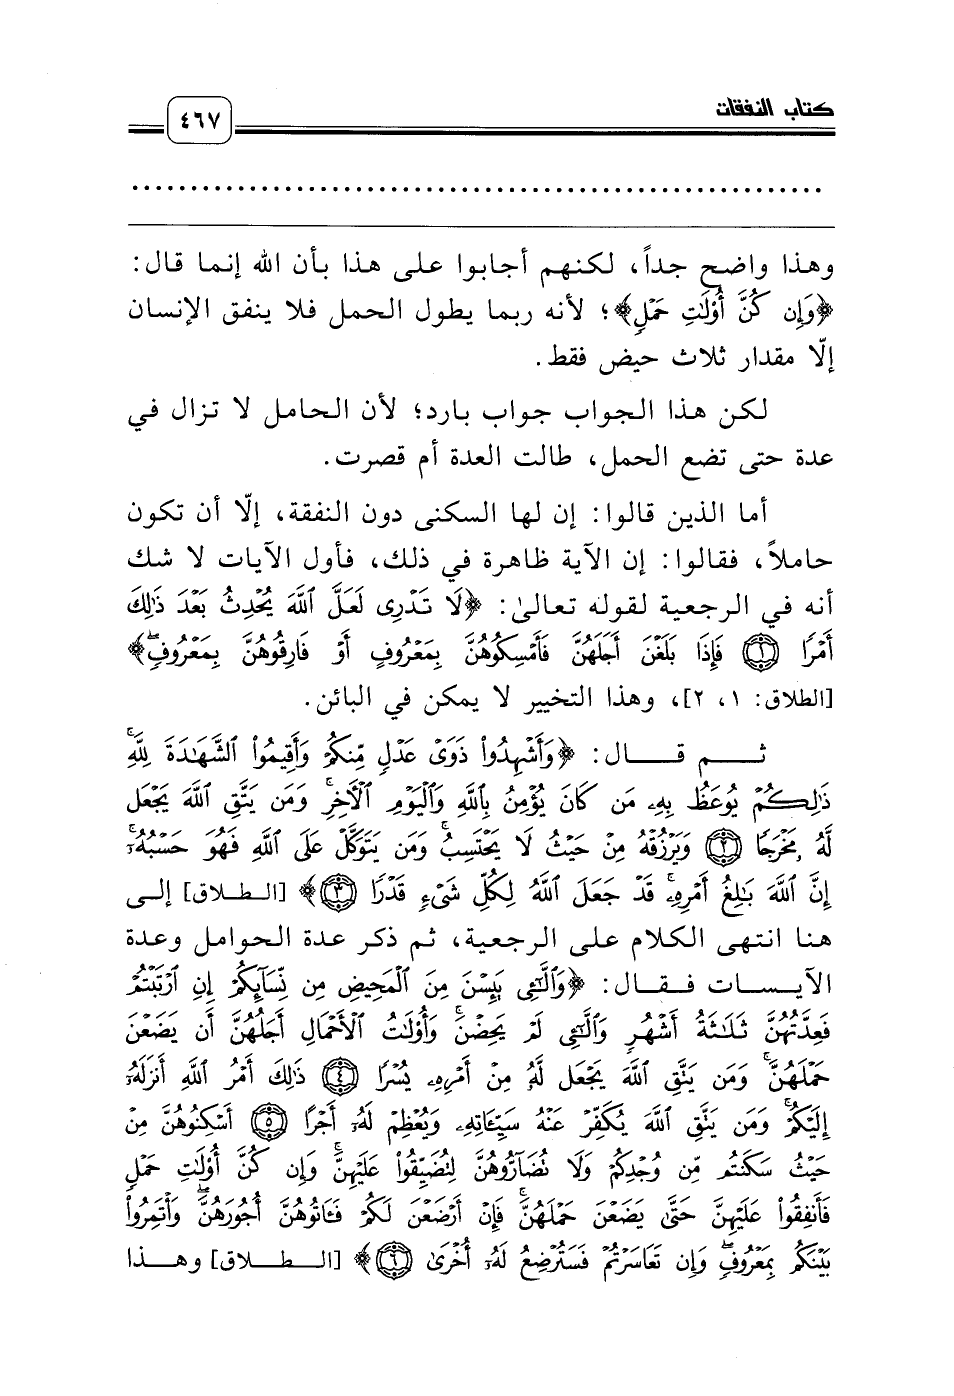 كتاب النفقات
٤٦٧
وهذا واضح جداً، لكنهم أجابوا على هذا بأن الله إنما قال:
﴿وَإِن كُنَّ أُوْلَٰتِ حَمْلٍ﴾؛ لأنه ربما يطول الحمل فلا ينفق الإنسان
إلّا مقدار ثلاث حيض فقط.
لكن هذا الجواب جواب بارد؛ لأن الحامل لا تزال في
عدة حتى تضع الحمل، طالت العدة أم قصرت.
أما الذين قالوا: إن لها السكنى دون النفقة، إلّا أن تكون
حاملاً، فقالوا: إن الآية ظاهرة في ذلك، فأول الآيات لا شك
أنه في الرجعية لقوله تعالىٰ: ﴿لَا تَدْرِى لَعَلَّ ٱللَّهَ يُحْدِثُ بَعْدَ ذَٰلِكَ
أَمْرًا ۝١ فَإِذَا بَلَغْنَ أَجَلَهُنَّ فَأَمْسِكُوهُنَّ بِمَعْرُوفٍ أَوْ فَارِقُوهُنَّ بِمَعْرُوفٍۖ﴾
[الطلاق: ١، ٢]، وهذا التخيير لا يمكن في البائن.
ثـم قـال: ﴿وَأَشْهِدُواْ ذَوَىْ عَدْلٍ مِّنكُمْ وَأَقِيمُواْ ٱلشَّهَٰدَةَ لِلَّهِۚ
ذَٰلِكُمْ يُوعَظُ بِهِۦ مَن كَانَ يُؤْمِنُ بِٱللَّهِ وَٱلْيَوْمِ ٱلْأٓخِرِۚ وَمَن يَتَّقِ ٱللَّهَ يَجْعَل
لَّهُۥ مَخْرَجًا ۝٢ وَيَرْزُقْهُ مِنْ حَيْثُ لَا يَحْتَسِبُۚ وَمَن يَتَوَكَّلْ عَلَى ٱللَّهِ فَهُوَ حَسْبُهُۥٓۚ
إِنَّ ٱللَّهَ بَٰلِغُ أَمْرِهِۦۚ قَدْ جَعَلَ ٱللَّهُ لِكُلِّ شَىْءٍ قَدْرًا ۝٣﴾ [الـطـلاق] إلى
هنا انتهى الكلام على الرجعية، ثم ذكر عدة الحوامل وعدة
الآيـسـات فـقـال: ﴿وَٱلَّٰٓـِٔى يَئِسْنَ مِنَ ٱلْمَحِيضِ مِن نِّسَآئِكُمْ إِنِ ٱرْتَبْتُمْ
فَعِدَّتُهُنَّ ثَلَٰثَةُ أَشْهُرٍ وَٱلَّٰٓـِٔى لَمْ يَحِضْنَۚ وَأُوْلَٰتُ ٱلْأَحْمَالِ أَجَلُهُنَّ أَن يَضَعْنَ
حَمْلَهُنَّۚ وَمَن يَتَّقِ ٱللَّهَ يَجْعَل لَّهُۥ مِنْ أَمْرِهِۦ يُسْرًا ۝٤ ذَٰلِكَ أَمْرُ ٱللَّهِ أَنزَلَهُۥٓ
إِلَيْكُمْۚ وَمَن يَتَّقِ ٱللَّهَ يُكَفِّرْ عَنْهُ سَيِّـَٔاتِهِۦ وَيُعْظِمْ لَهُۥٓ أَجْرًا ۝٥ أَسْكِنُوهُنَّ مِنْ
حَيْثُ سَكَنتُم مِّن وُجْدِكُمْ وَلَا تُضَآرُّوهُنَّ لِتُضَيِّقُواْ عَلَيْهِنَّۚ وَإِن كُنَّ أُوْلَٰتِ حَمْلٍ
فَأَنفِقُواْ عَلَيْهِنَّ حَتَّىٰ يَضَعْنَ حَمْلَهُنَّۚ فَإِنْ أَرْضَعْنَ لَكُمْ فَـَٔاتُوهُنَّ أُجُورَهُنَّۖ وَأْتَمِرُواْ
بَيْنَكُم بِمَعْرُوفٍۖ وَإِن تَعَاسَرْتُمْ فَسَتُرْضِعُ لَهُۥٓ أُخْرَىٰ ۝٦﴾ [الـطـلاق] وهـذا